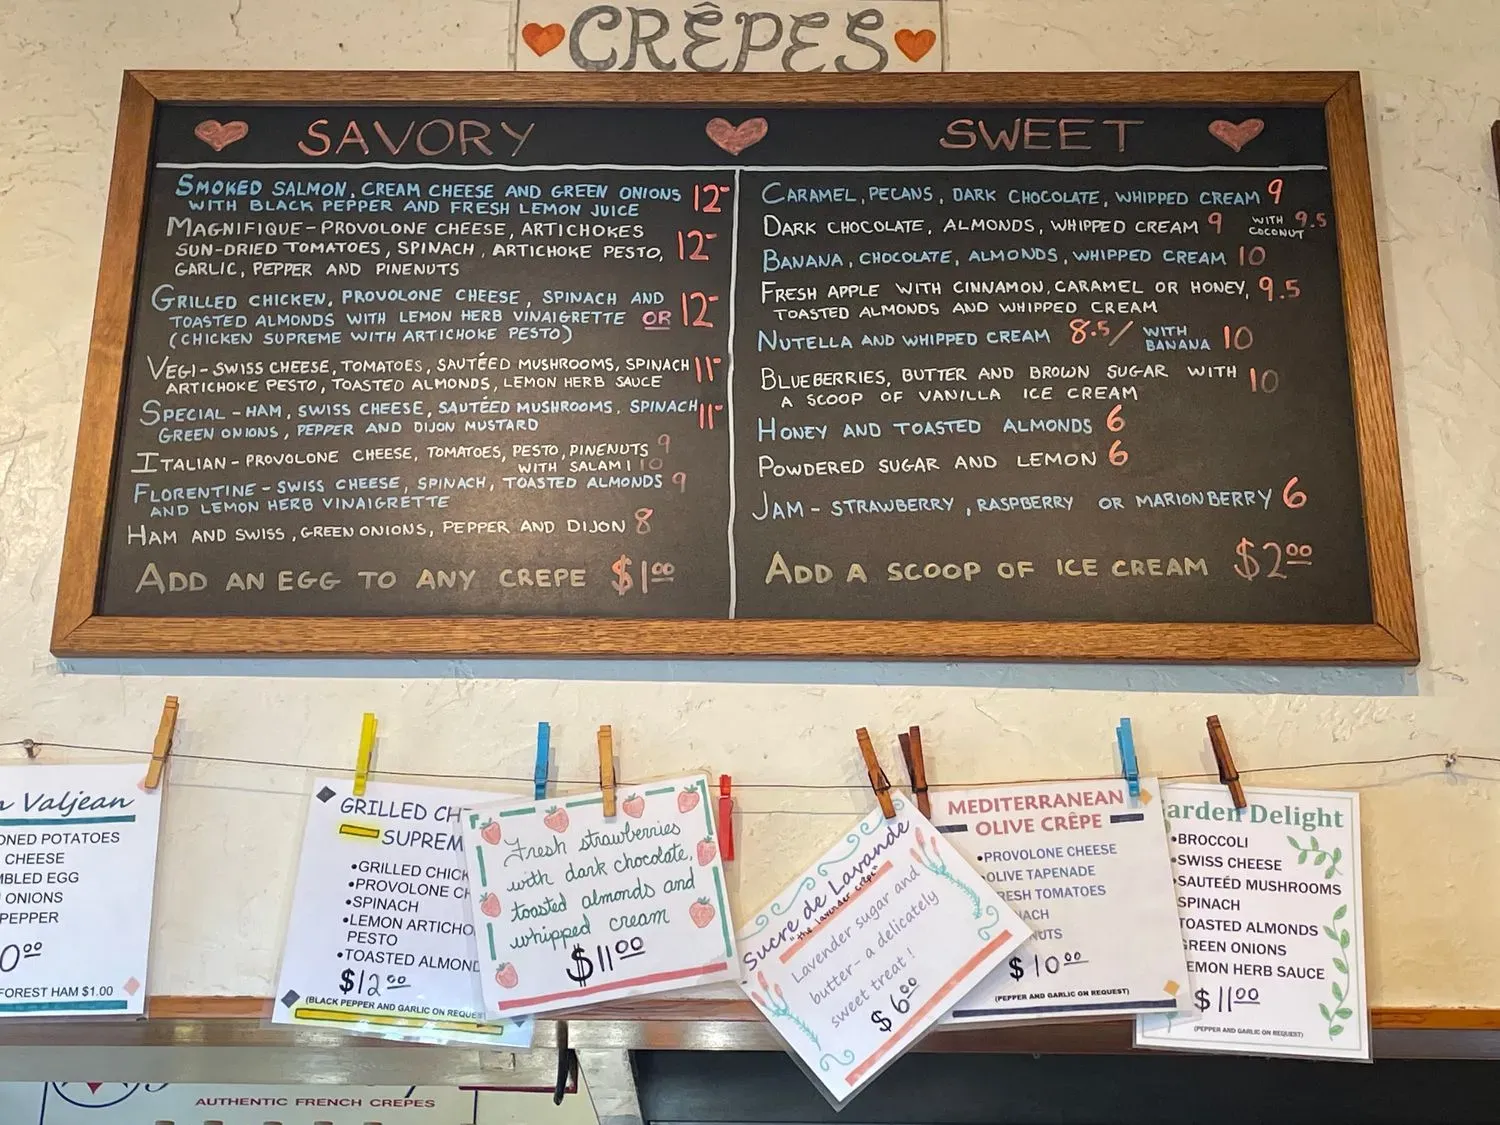 CRÊPES
SAVORY
SMOKED SALMON, CREAM CHEESE AND GREEN ONIONS 12-
WITH BLACK PEPPER AND FRESH LEMON JUICE
MAGNIFIQUE - PROVOLONE CHEESE, ARTICHOKES
SUN-DRIED TOMATOES, SPINACH, ARTICHOKE PESTO, 12-
GARLIC, PEPPER AND PINENUTS
GRILLED CHICKEN, PROVOLONE CHEESE, SPINACH AND
TOASTED ALMONDS WITH LEMON HERB VINAIGRETTE OR 12-
(CHICKEN SUPREME WITH ARTICHOKE PESTO)
VEGI - SWISS CHEESE, TOMATOES, SAUTÉED MUSHROOMS, SPINACH 11-
ARTICHOKE PESTO, TOASTED ALMONDS, LEMON HERB SAUCE
SPECIAL - HAM, SWISS CHEESE, SAUTÉED MUSHROOMS, SPINACH 11-
GREEN ONIONS, PEPPER AND DIJON MUSTARD
ITALIAN - PROVOLONE CHEESE, TOMATOES, PESTO, PINENUTS 9
WITH SALAMI 10
FLORENTINE - SWISS CHEESE, SPINACH, TOASTED ALMONDS 9
AND LEMON HERB VINAIGRETTE
HAM AND SWISS, GREEN ONIONS, PEPPER AND DIJON 8
ADD AN EGG TO ANY CREPE $1.00
SWEET
CARAMEL, PECANS, DARK CHOCOLATE, WHIPPED CREAM 9
DARK CHOCOLATE, ALMONDS, WHIPPED CREAM 9 WITH COCONUT 9.5
BANANA, CHOCOLATE, ALMONDS, WHIPPED CREAM 10
FRESH APPLE WITH CINNAMON, CARAMEL OR HONEY, 9.5
TOASTED ALMONDS AND WHIPPED CREAM
NUTELLA AND WHIPPED CREAM 8.5/ WITH BANANA 10
BLUEBERRIES, BUTTER AND BROWN SUGAR WITH 10
A SCOOP OF VANILLA ICE CREAM
HONEY AND TOASTED ALMONDS 6
POWDERED SUGAR AND LEMON 6
JAM - STRAWBERRY, RASPBERRY OR MARIONBERRY 6
ADD A SCOOP OF ICE CREAM $2.00
n Valjean
ONED POTATOES
CHEESE
MBLED EGG
ONIONS
PEPPER
0.00
FOREST HAM $1.00
GRILLED CH
SUPREM
•GRILLED CHICK
•PROVOLONE CH
•SPINACH
•LEMON ARTICHO
PESTO
•TOASTED ALMOND
$12.00
(BLACK PEPPER AND GARLIC ON REQUES
Fresh strawberries
with dark chocolate,
toasted almonds and
whipped cream
$11.00
Sucre de Lavande
"the lavender crêpe"
Lavender sugar and
butter- a delicately
sweet treat!
$6.00
MEDITERRANEAN
OLIVE CRÊPE
•PROVOLONE CHEESE
OLIVE TAPENADE
RESH TOMATOES
NACH
NUTS
$10.00
(PEPPER AND GARLIC ON REQUEST)
arden Delight
•BROCCOLI
•SWISS CHEESE
•SAUTEÉD MUSHROOMS
SPINACH
TOASTED ALMONDS
GREEN ONIONS
EMON HERB SAUCE
$11.00
(PEPPER AND GARLIC ON REQUEST)
AUTHENTIC FRENCH CREPES